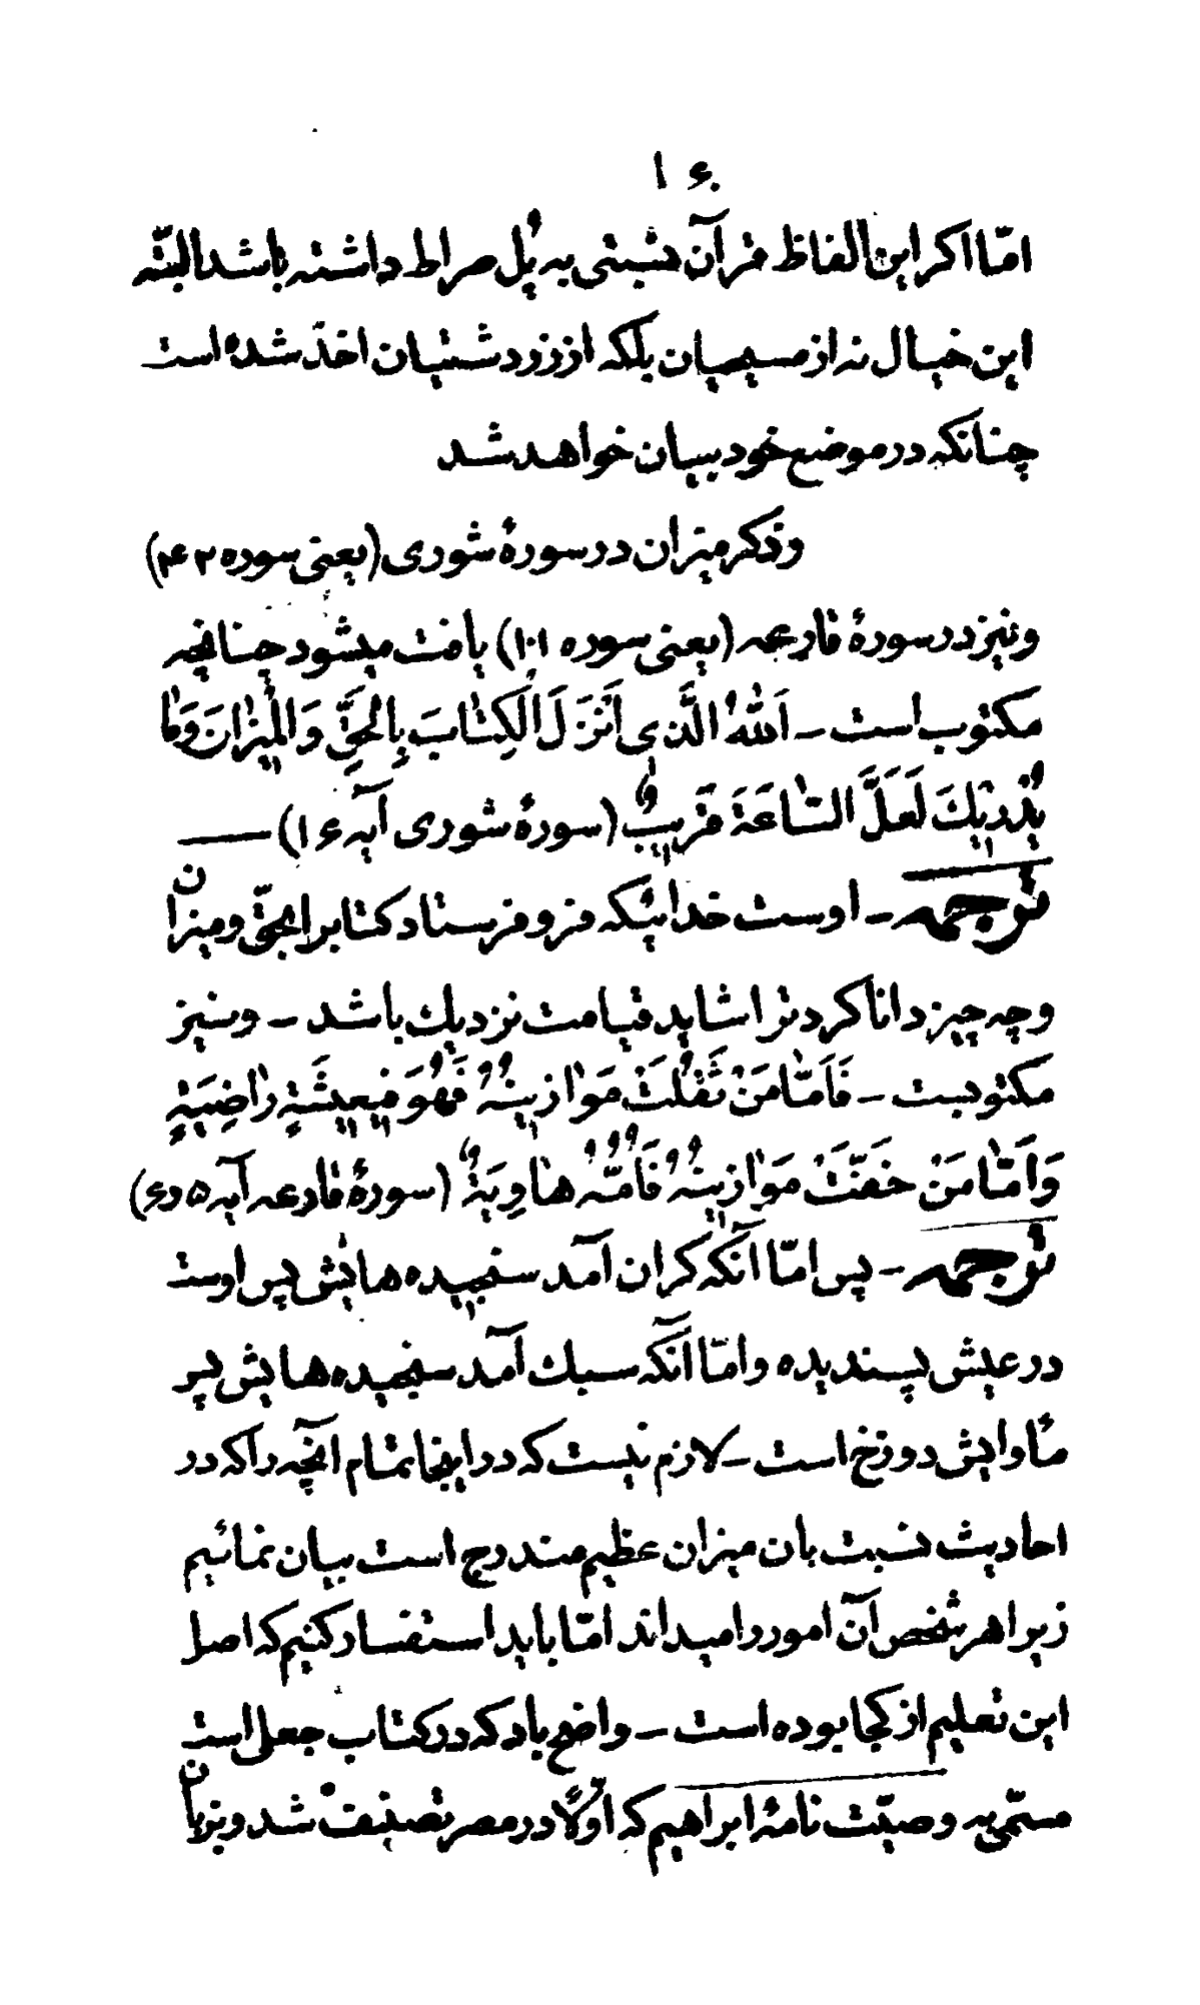 ۱۶۰
امّا اکر این الفاظ قرآن نسبتی به پُل صراط داشته باشد البتّه
این خیال نه از مسیحیان بلکه از زردشتیان اخذ شده است
چنانکه در موضع خود بیان خواهد شد
و ذکر میزان در سورهٔ شوری (یعنی سوره ۴۲)
و نیز در سورهٔ قارعه (یعنی سوره ۱۰۱) یافت میشود چنانچه
مکتوب است ـ اَللهُ الَّذی اَنْزَلَ الْکِتٰابَ بِالْحَقِّ وَ الْمیزٰانَ وَ مٰا
یُدْریٰكَ لَعَلَّ السّٰاعَةَ قَریبٌ (سورهٔ شوری آیه ۱۶) ــــ
ترجمه ـ اوست خدائیکه فرو فرستاد کتابرا بحقّ و میزان
و چه چیز دانا کرد ترا شاید قیامت نزدیك باشد ـ و نیز
مکتوبست ـ فَاَمّٰا مَنْ ثَقُلَتْ مَوٰازینُهُ فَهُوَ فیعیشَةٍ رٰاضِیَةٍ
وَ اَمّٰا مَنْ خَفَّتْ مَوٰازینُهُ فَاُمُّهُ هٰاوِیَةٌ (سورهٔ قارعه آیه ۵ و ۶)
ترجمه ـ پس امّا آنکه کران آمد سنجیده هایش پس اوست
در عیش پسندیده و امّا آنکه سبك آمد سنجیده هایش پس
مأوایش دوزخ است ـ لازم نیست که در اینجا تمام آنچه را که در
احادیث نسبت بان میزان عظیم مندرج است بیان نمائیم
زیرا هر شخص آن امور را میداند امّا باید استفسار کنیم که اصل
این تعلیم از کجا بوده است ـ واضح باد که در کتاب جعلی است
مسمّی به وصیّت نامهٔ ابراهیم که اوّلاً در مصر تصنیف شد و بزبان